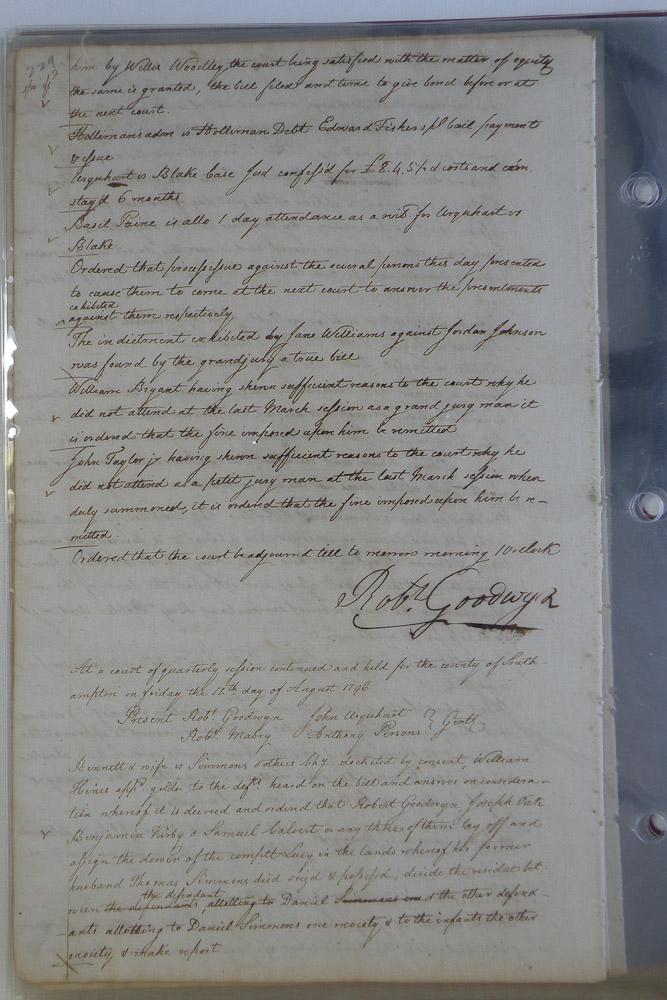 him by Willis Woodley, the court being satisfied with the matter of equity
the same is granted, the bill filed and time to give bond before or at
the next court.
Hollemans adm vs Holleman Debt Edward Fisher spl bail payment
& issue
Urquhart vs Blake Case Jud confess'd for £8.4.5½ & costs and
stay'd 6 months
Basil Paine is allo 1 day attendance as a wits for Urquhart vs
Blake
Ordered that process issue against the several persons this day presented
to cause them to come at the next court to answer the presentments
exhibited
against them respectively
The indictment exhibited by Jane Williams against Jordan Johnson
was found by the grandjury a true bill
William Bryant having shewn sufficient reasons to the court why he
did not attend at the last March session as a grand jury man it
is ordered that the fine imposed upon him be remitted
John Taylor jr having shewn sufficient reasons to the court why he
did not attend as a petit jury man at the last March session when
duly summoned, it is ordered that the fine imposed upon him be re-
mitted.
Ordered that the court be adjourn'd till to morrow morning 10 oclock
Robt. Goodwyn
At a court of quarterly session continued and held for the county of South-
ampton on friday the 12th day of August 1796
Present Robt. Goodwyn John Urquhart } Gentl
Robt. Mabry Anthony Persons
Bennett & wife vs Simmons & others Chy docketed by consent, William
Hines appd. gdn to the defts heard on the bill and answer on considera-
tion whereof it is decreed and ordered that Robert Goodwyn, Joseph
Benjamin Kirby & Samuel Calvert or any three of them lay off and
assign the dower of the complt Lucy in the lands whereof her former
husband Thomas Simmons died seiz'd & possess'd, divide the residue bet
the defendant
ween the defendants, allotting to Daniel Simmons one & the other defend-
ants allotting to Daniel Simmons one moiety & to the infants the other
moiety, & make report